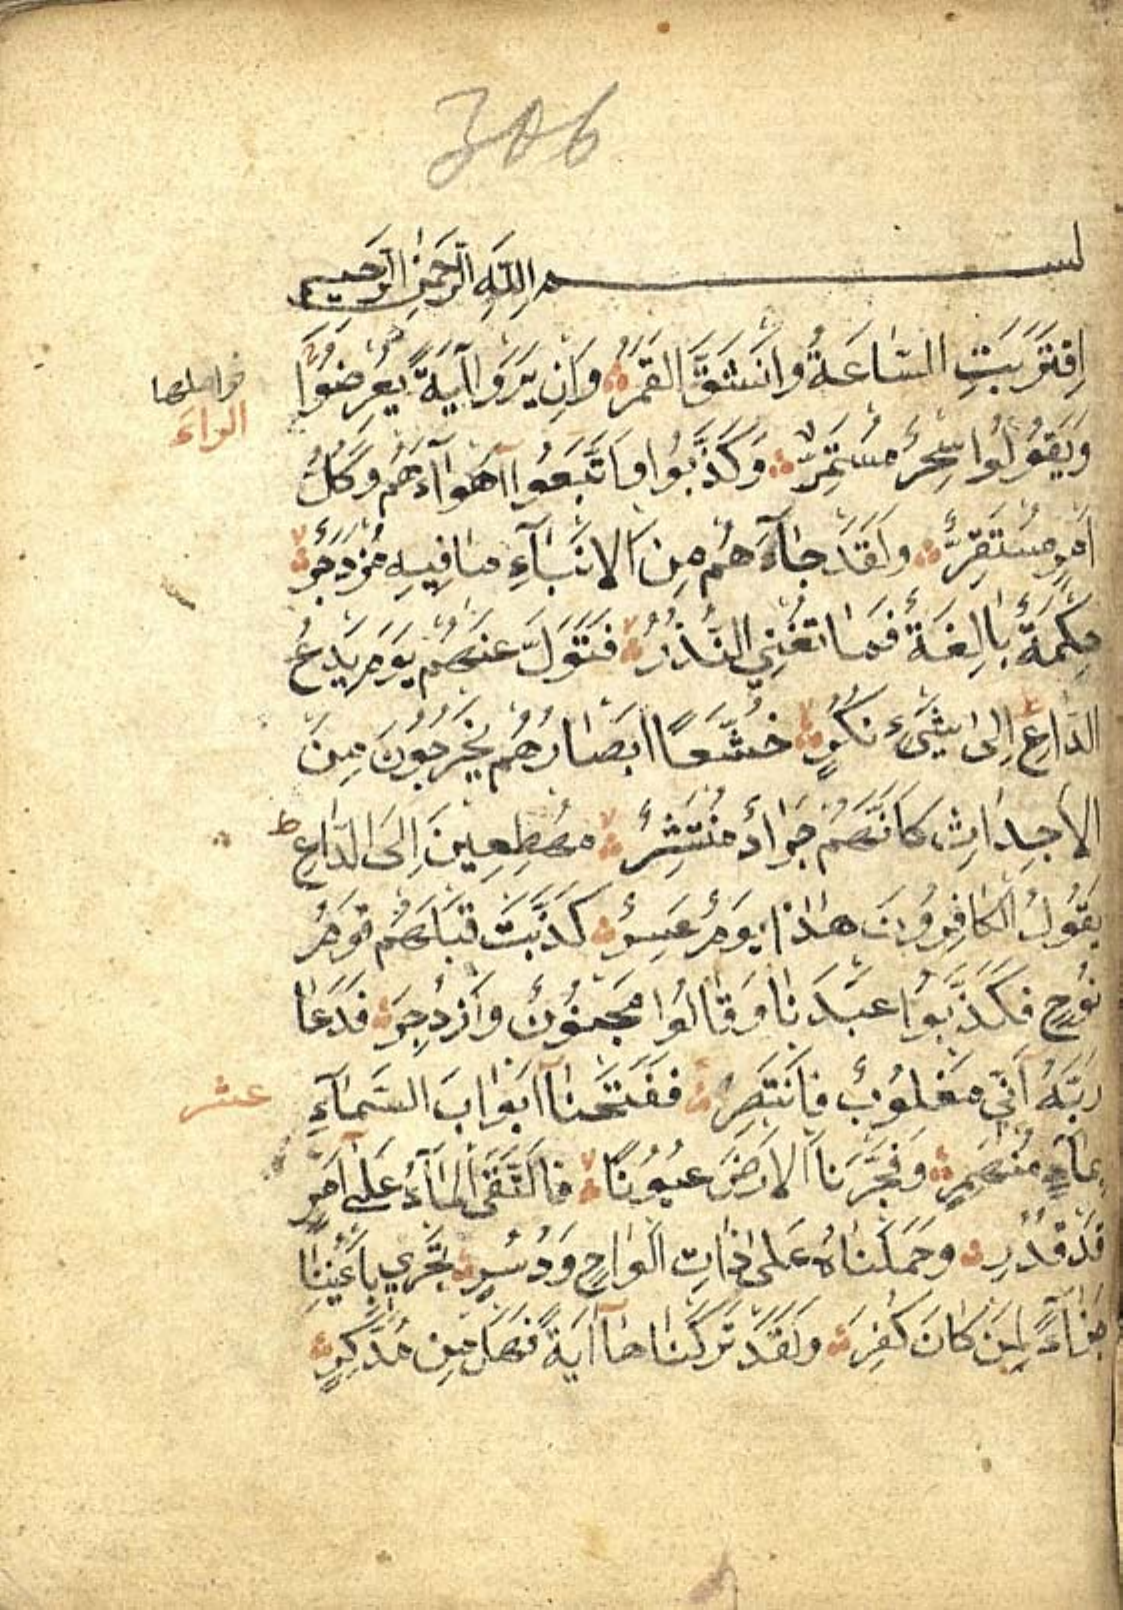 306
بسم اللّٰهِ الرَّحْمٰنِ الرَّحيم
اِقْتَرَبَتِ السَّاعَةُ وَانْشَقَّ الْقَمَرُ وَاِنْ يَرَوْا اٰيَةً يُعْرِضُوْا
فواصلها
الراء
وَيَقُوْلُوْا سِحْرٌ مُسْتَمِرٌّ وَكَذَّبُوْا وَاتَّبَعُوْا اَهْوَآءَهُمْ وَكُلُّ
اَمْرٍ مُسْتَقِرٌّ وَلَقَدْ جَآءَهُمْ مِنَ الْاَنْبَآءِ مَا فِيهِ مُزْدَجَرٌ
حِكْمَةٌ بَالِغَةٌ فَمَا تُغْنِي النُّذُرُ فَتَوَلَّ عَنْهُمْ يَوْمَ يَدْعُ
الدَّاعِ اِلٰى شَيْءٍ نُكُرٍ خُشَّعًا اَبْصَارُهُمْ يَخْرُجُوْنَ مِنَ
الْاَجْدَاثِ كَاَنَّهُمْ جَرَادٌ مُنْتَشِرٌ مُهْطِعِينَ اِلَى الدَّاعِ ط
يَقُوْلُ الْكَافِرُوْنَ هٰذَا يَوْمٌ عَسِرٌ كَذَّبَتْ قَبْلَهُمْ قَوْمُ
نُوْحٍ فَكَذَّبُوْا عَبْدَنَا وَقَالُوْا مَجْنُوْنٌ وَازْدُجِرَ فَدَعَا
رَبَّهُ اَنِّي مَغْلُوْبٌ فَانْتَصِرْ فَفَتَحْنَا اَبْوَابَ السَّمَآءِ
عشر
بِمَآءٍ مُنْهَمِرٍ وَفَجَّرْنَا الْاَرْضَ عُيُوْنًا فَالْتَقَى الْمَآءُ عَلٰى اَمْرٍ
قَدْ قُدِرَ وَحَمَلْنَاهُ عَلٰى ذَاتِ اَلْوَاحٍ وَدُسُرٍ تَجْرِي بِاَعْيُنِنَا
جَزَآءً لِمَنْ كَانَ كُفِرَ وَلَقَدْ تَرَكْنَاهَا اٰيَةً فَهَلْ مِنْ مُدَّكِرٍ